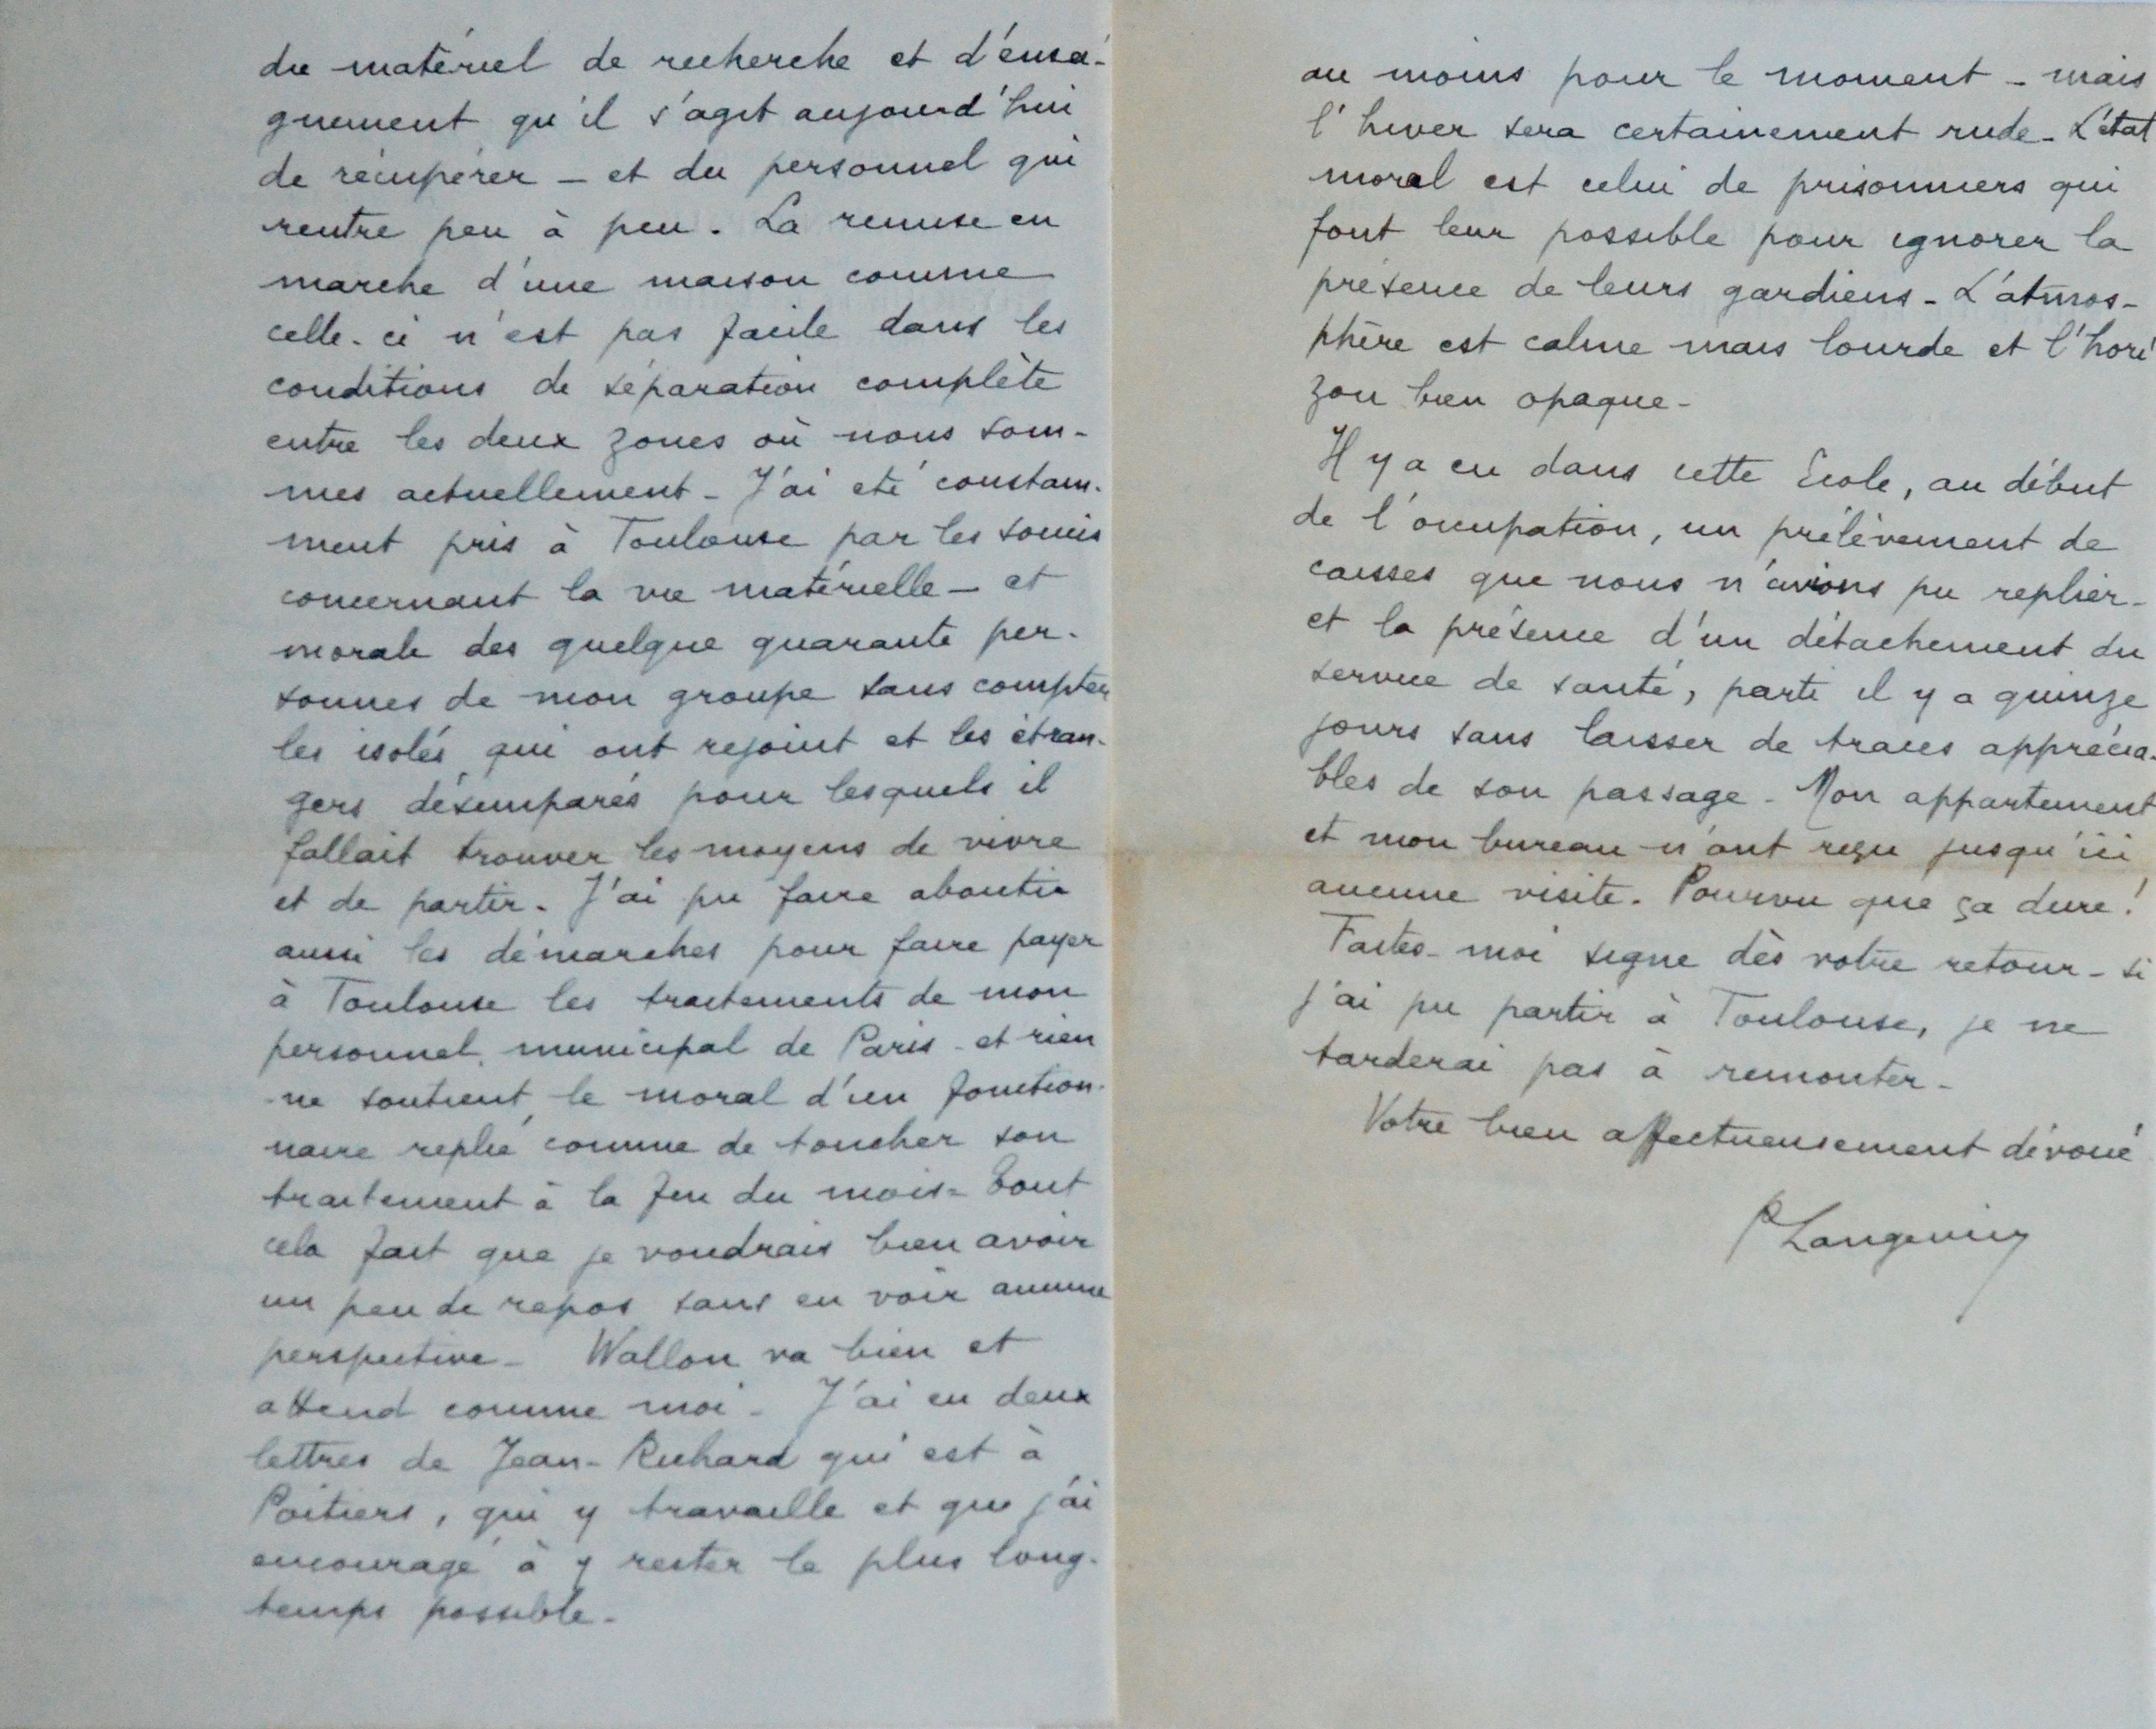 du matériel de recherche et d'ensei-
gnement qu'il s'agit aujourd'hui
de récupérer — et du personnel qui
rentre peu à peu. La remise en
marche d'une maison comme
celle-ci n'est pas facile dans les
conditions de séparation complète
entre les deux zones où nous som-
mes actuellement - J'ai été constam-
ment pris à Toulouse par les soucis
concernant la vie matérielle — et
morale des quelque quarante per-
sonnes de mon groupe sans compter
les isolés qui ont rejoint et les étran-
gers désemparés pour lesquels il
fallait trouver les moyens de vivre
et de partir. J'ai pu faire aboutir
aussi les démarches pour faire payer
à Toulouse les traitements de mon
personnel municipal de Paris - et rien
ne soutient le moral d'un fonction-
naire replié comme de toucher son
traitement à la fin du mois - Tout
cela fait que je voudrais bien avoir
un peu de repos sans en voir aucune
perspective - Wallon va bien et
attend comme moi - J'ai eu deux
lettres de Jean-Richard qui est à
Poitiers, qui y travaille et que j'ai
encouragé à y rester le plus long-
temps possible -
au moins pour le moment - mais
l'hiver sera certainement rude - L'état
moral est celui de prisonniers qui
font leur possible pour ignorer la
présence de leurs gardiens - L'atmos-
phère est calme mais lourde et l'hori
zon bien opaque -
Il y a eu dans cette Ecole, au début
de l'occupation, un prélèvement de
caisses que nous n'avions pu replier -
et la présence d'un détachement du
service de santé, parti il y a quinze
jours sans laisser de traces apprécia-
bles de son passage - Mon appartement
et mon bureau n'ont reçu jusqu'ici
aucune visite. Pourvu que ça dure!
Faites-moi signe dès votre retour - si
j'ai pu partir à Toulouse, je ne
tarderai pas à remonter -
Votre bien affectueusement dévoué
P Langevin